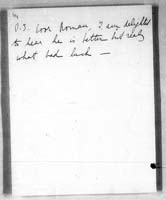 P.S. Poor Roman, I am delighted
to hear he is better but really
what bad luck —